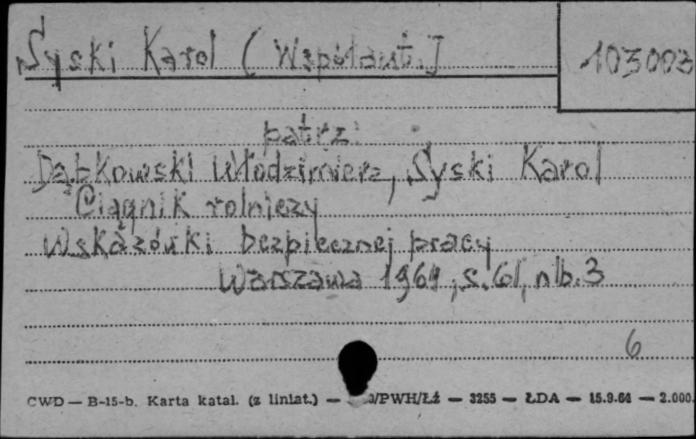 Syski Karol (Współaut.]
103003
patrz:
Dąbkowski Włodzimierz, Syski Karol
Ciągnik rolniczy
Wskazówki bezpiecznej pracy
Warszawa 1964, s. 61, nlb. 3
6
CWD — B-15-b. Karta katal. (z liniat.) — /PWH/Łź — 3255 — ŁDA — 15.9.64 — 2.000.